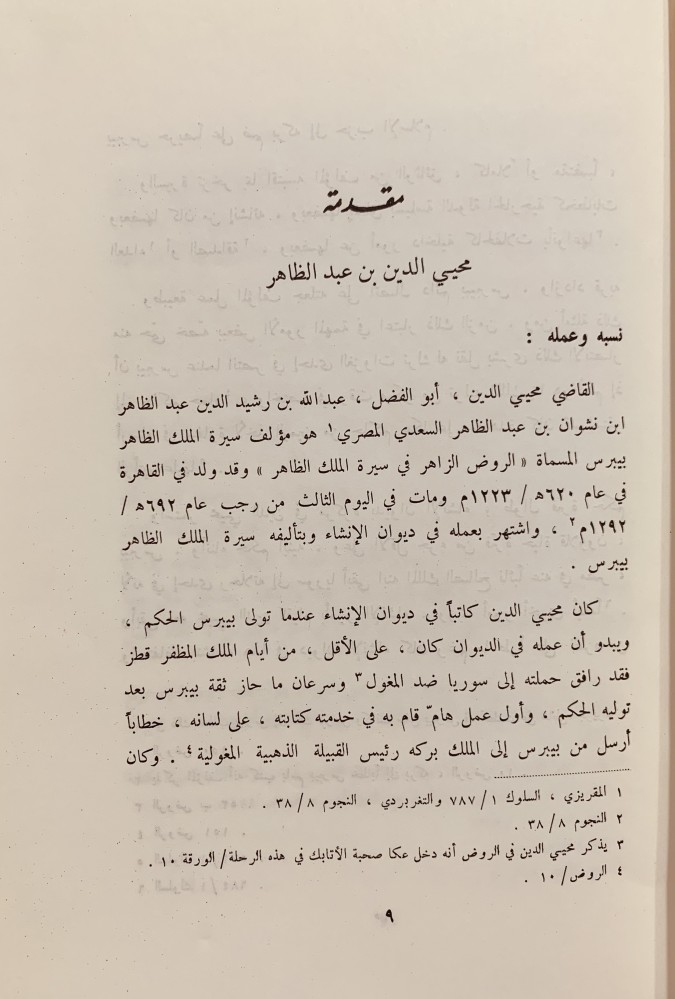 مقدمة
محيي الدين بن عبد الظاهر
نسبه وعمله :
القاضي محيي الدين ، أبو الفضل ، عبد الله بن رشيد الدين عبد الظاهر
ابن نشوان بن عبد الظاهر السعدي المصري١ هو مؤلف سيرة الملك الظاهر
بيبرس المسماة « الروض الزاهر في سيرة الملك الظاهر » وقد ولد في القاهرة
في عام ٦٢٠ھ / ١٢٢٣م ومات في اليوم الثالث من رجب عام ٦٩٢ھ /
١٢٩٢م٢ ، واشتهر بعمله في ديوان الإنشاء وبتأليفه سيرة الملك الظاهر
بيبرس .
كان محيي الدين كاتباً في ديوان الإنشاء عندما تولى بيبرس الحكم ،
ويبدو أن عمله في الديوان كان ، على الأقل ، من أيام الملك المظفر قطز
فقد رافق حملته إلى سوريا ضد المغول٣ وسرعان ما حاز ثقة بيبرس بعد
توليه الحكم ، وأول عمل هامّ قام به في خدمته كتابته ، على لسانه ، خطاباً
أرسل من بيبرس إلى الملك بركه رئيس القبيلة الذهبية المغولية٤ . وكان
١ المقريزي ، السلوك ١ / ٧٨٧ والتغربردي ، النجوم ٨ / ٣٨ .
٢ النجوم ٨ / ٣٨ .
٣ يذكر محيي الدين في الروض أنه دخل عكا صحبة الأتابك في هذه الرحلة / الورقة ١٠ .
٤ الروض / ١٠ .
٩